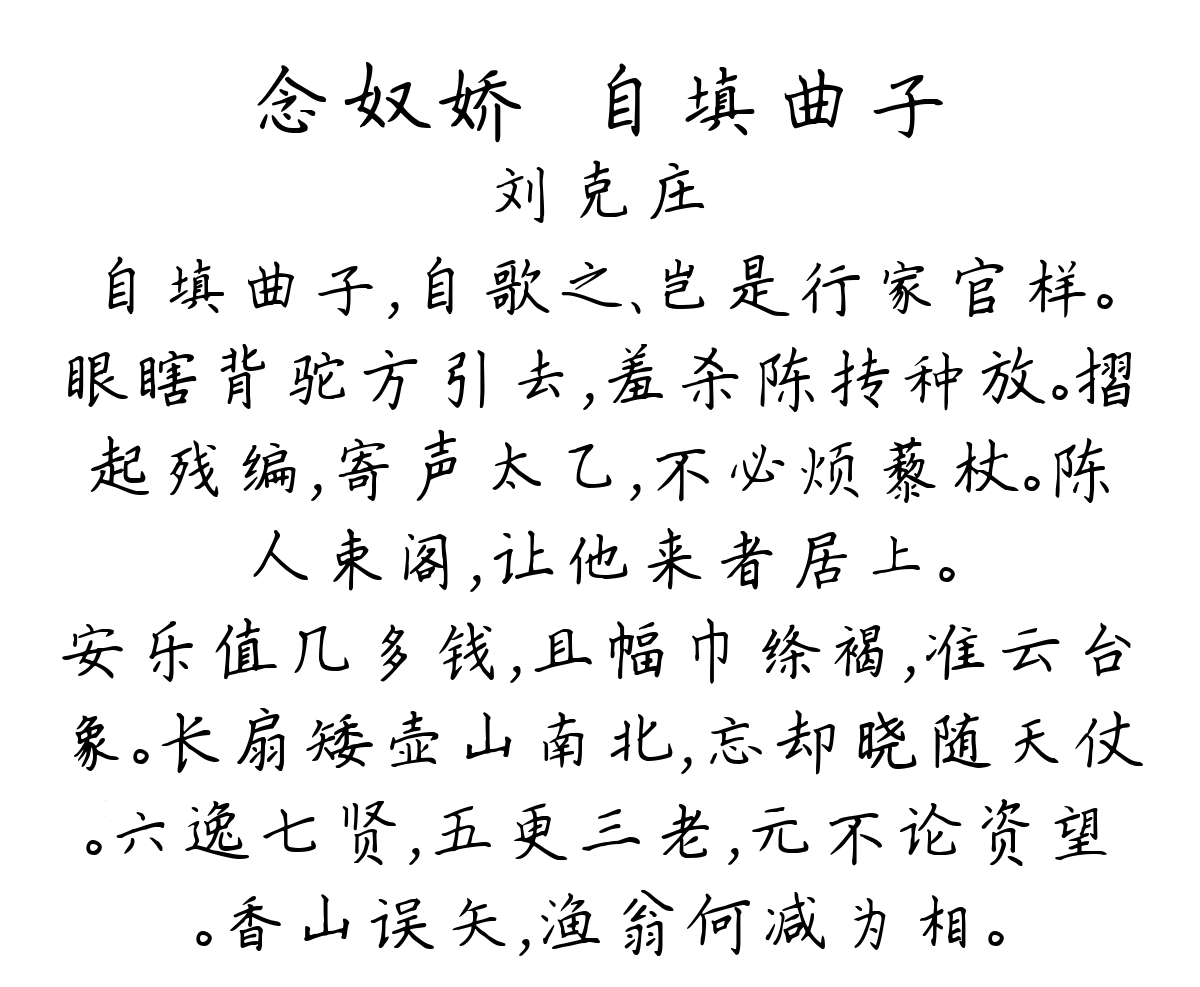 念奴娇 自填曲子
刘克庄
自填曲子,自歌之、岂是行家官样。
眼瞎背驼方引去,羞杀陈抟种放。摺
起残编,寄声太乙,不必烦藜杖。陈
人束阁,让他来者居上。
安乐值几多钱,且幅巾绦褐,准云台
象。长扇矮壶山南北,忘却晓随天仗
。六逸七贤,五更三老,元不论资望
。香山误矢,渔翁何减为相。